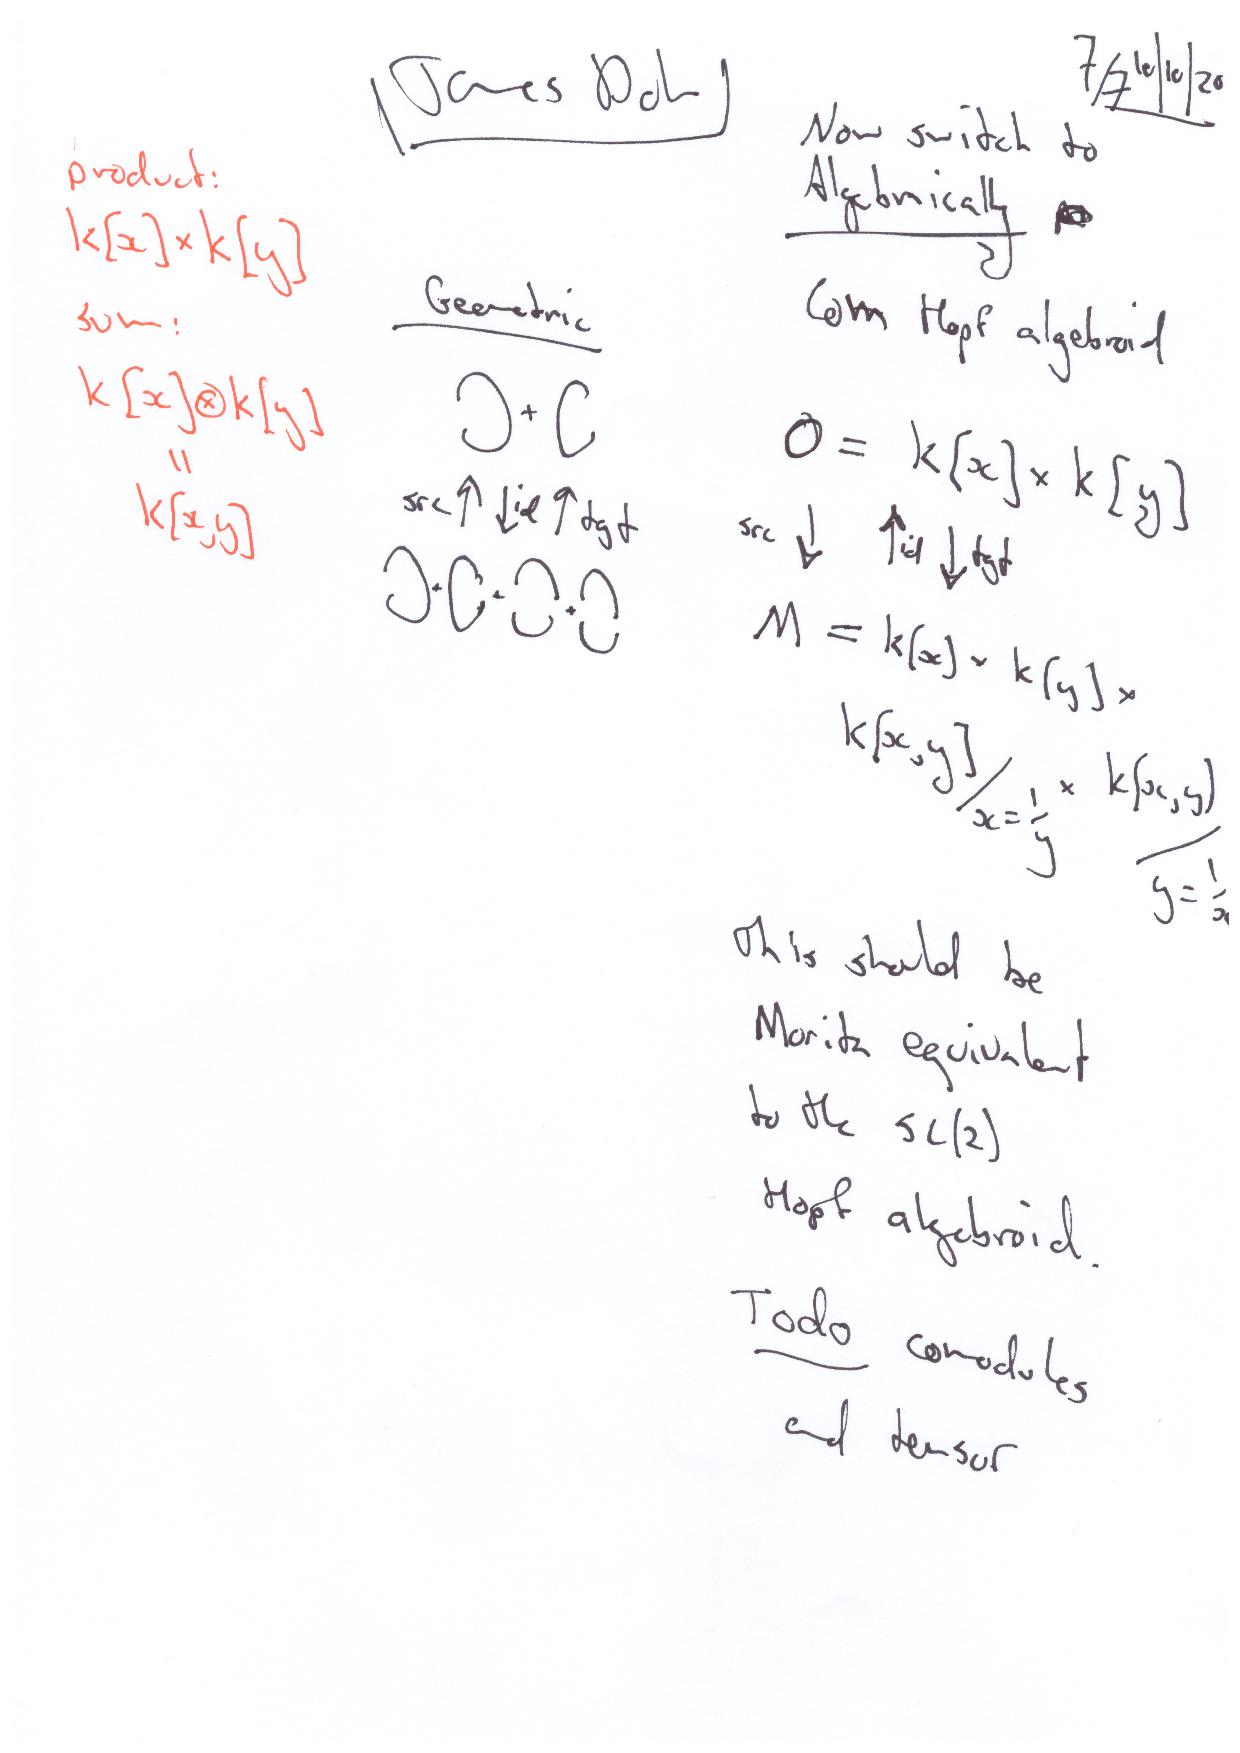 James Doh
7/7 10/10/20
product:
k[x] × k[y]
sum:
k[x] ⊗ k[y]
=
k[x,y]
Geometric
+
src ↑ ↓ id ↑ tgt
+ + +
Now switch to
Algebraically
Com Hopf algebroid
O = k[x] × k[y]
src ↓ ↑ id ↓ tgt
M = k[x] × k[y] ×
k[x,y] / x = 1/y × k[x,y] / y = 1/x
This should be
Morita equivalent
to the SL(2)
Hopf algebroid.
Todo comodules
and tensor